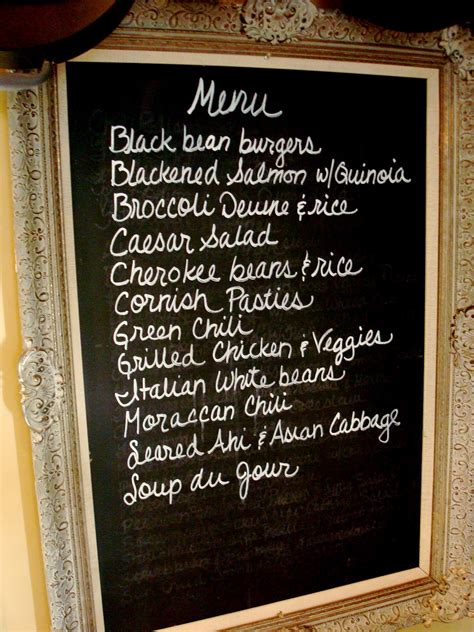 Menu
Black bean burgers
Blackened Salmon w/Quinoia
Broccoli Devine & rice
Caesar Salad
Cherokee beans & rice
Cornish Pasties
Green Chili
Grilled Chicken & Veggies
Italian White beans
Moraccan Chili
Seared Ahi & Asian Cabbage
Soup du Jour